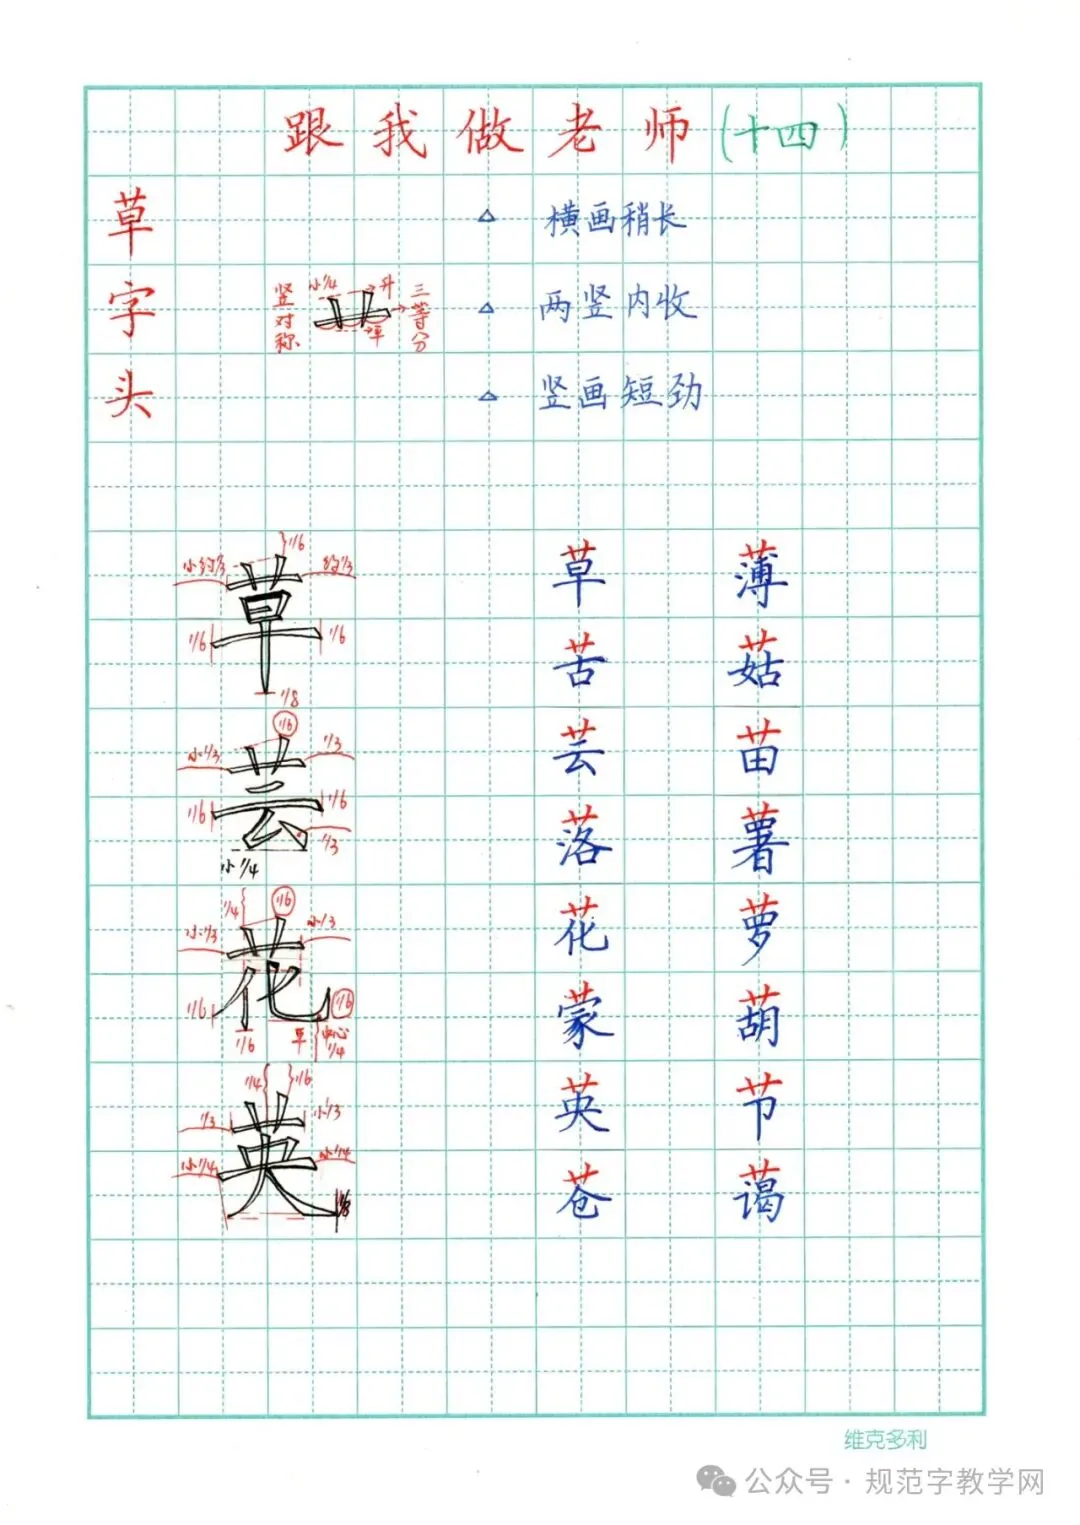 跟我做老师(十四)
草字头
△ 横画稍长
△ 两竖内收
△ 竖画短劲
竖对称
小1/4
升
三等分
平
1/6
小约1/3
约1/3
草
1/6
1/6
1/8
1/6
小1/3
1/3
芸
1/6
1/6
1/3
小1/4
1/4
1/6
小1/3
小1/3
花
1/6
1/6
1/6
平
中心
1/4
1/4
1/6
1/3
小1/3
英
小1/4
小1/4
1/8
草 薄
苦 菇
芸 苗
落 薯
花 萝
蒙 葫
英 节
苍 蔼
维克多利
公众号·规范字教学网